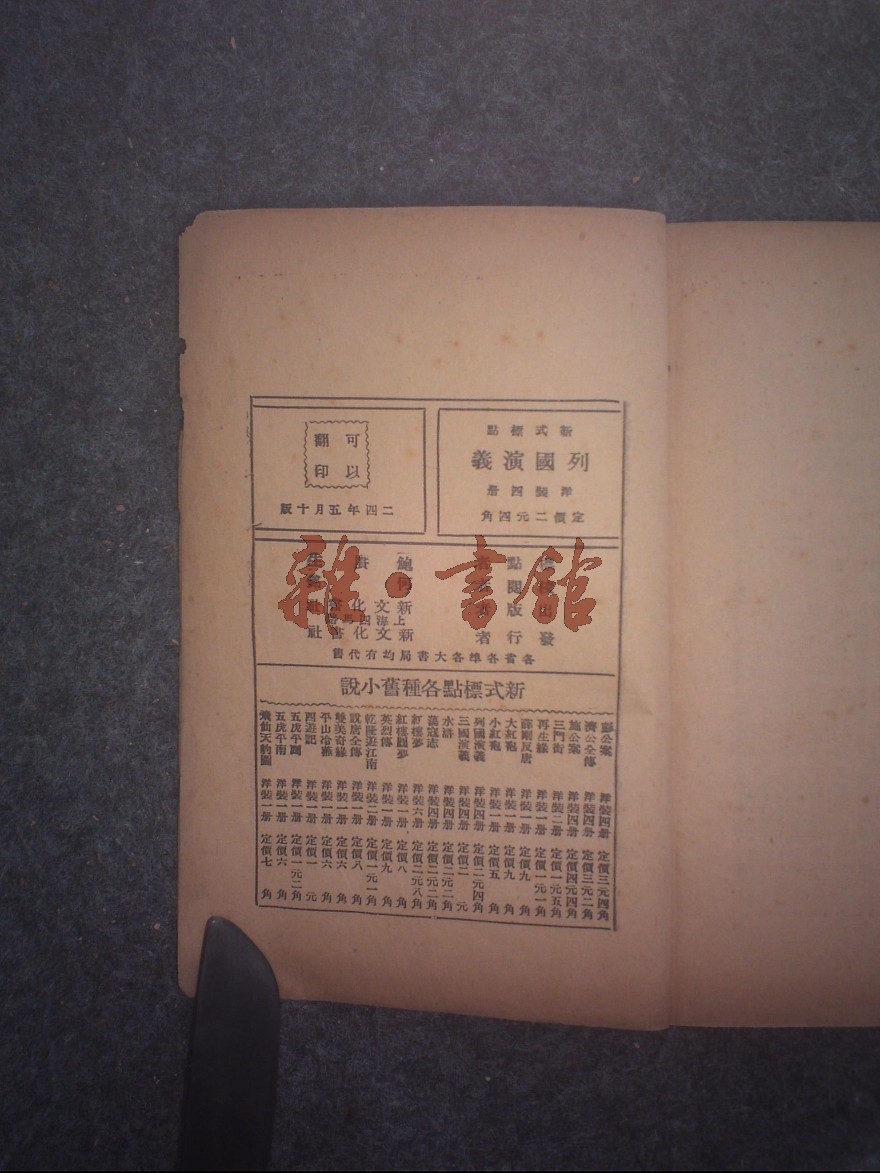 新式標點
列國演義
洋裝四册
定價二元四角
可以
翻印
二四年五月十版
點者 鮑賡生
校閱者 何銘
出版者 新文化書社
上海四馬路
發行者 新文化書社
各省各埠各大書局均有代售
新式標點各種舊小說
彭公案 洋裝四册 定價三元四角
濟公全傳 洋裝四册 定價三元二角
施公案 洋裝四册 定價四元四角
三門街 洋裝二册 定價一元五角
再生緣 洋裝一册 定價一元一角
薛剛反唐 洋裝一册 定價九角
大紅袍 洋裝一册 定價九角
小紅袍 洋裝一册 定價五角
列國演義 洋裝四册 定價二元四角
三國演義 洋裝四册 定價二元
水滸 洋裝四册 定價二元二角
蕩寇志 洋裝四册 定價二元二角
紅樓夢 洋裝六册 定價二元八角
紅樓圓夢 洋裝一册 定價八角
英烈傳 洋裝一册 定價九角
乾隆遊江南 洋裝二册 定價一元一角
說唐全傳 洋裝一册 定價八角
雙美奇緣 洋裝一册 定價六角
平山冷燕 洋裝一册 定價六角
四遊記 洋裝一册 定價一元
五虎平西 洋裝一册 定價一元二角
五虎平南 洋裝一册 定價六角
飛仙天豹圖 洋裝一册 定價七角
雜·書館